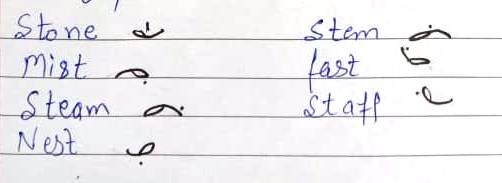 Stone Stem
Mist fast
Steam Staff
Nest